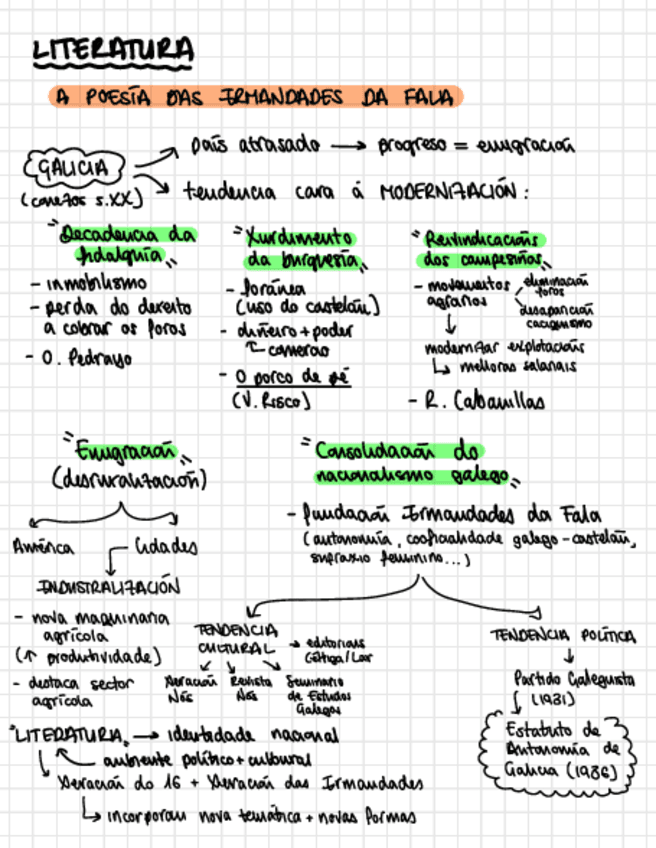 LITERATURA
A POESÍA DAS IRMANDADES DA FALA
GALICIA
(comezos s.XX)
país atrasado → progreso = emigración
tendencia cara á MODERNIZACIÓN:
"Decadencia da
fidalguía"
- inmobilismo
- perda do dereito
a cobrar os foros
- O. Pedrayo
"Xurdimento
da burguesía"
- foránea
(uso do castelán)
- diñeiro + poder
comercio
- O porco de pé
(V. Risco)
"Reivindicacións
dos campesiños"
- movementos
agrarios
eliminación
foros
desaparición
caciquismo
modernizar explotacións
↳ melloras salariais
- R. Cabanillas
"Emigración"
(desruralización)
América
Cidades
INDUSTRALIZACIÓN
- nova maquinaria
agrícola
(↑ produtividade)
- destaca sector
agrícola
"Consolidación do
nacionalismo galego"
- fundación Irmandades da Fala
(autonomía, cooficialidade galego - castelán,
sufraxio feminino...)
TENDENCIA
CULTURAL
→ editoriais
Céltiga/Lar
Xeración
Nós
Revista
Nós
Seminario
de Estudos
Galegos
TENDENCIA POLÍTICA
Partido Galeguista
(1931)
Estatuto de
Autonomía de
Galicia (1936)
"LITERATURA" → identidade nacional
ambiente político + cultural
Xeración do 16 + Xeración das Irmandades
↳ incorporan nova temática + novas formas